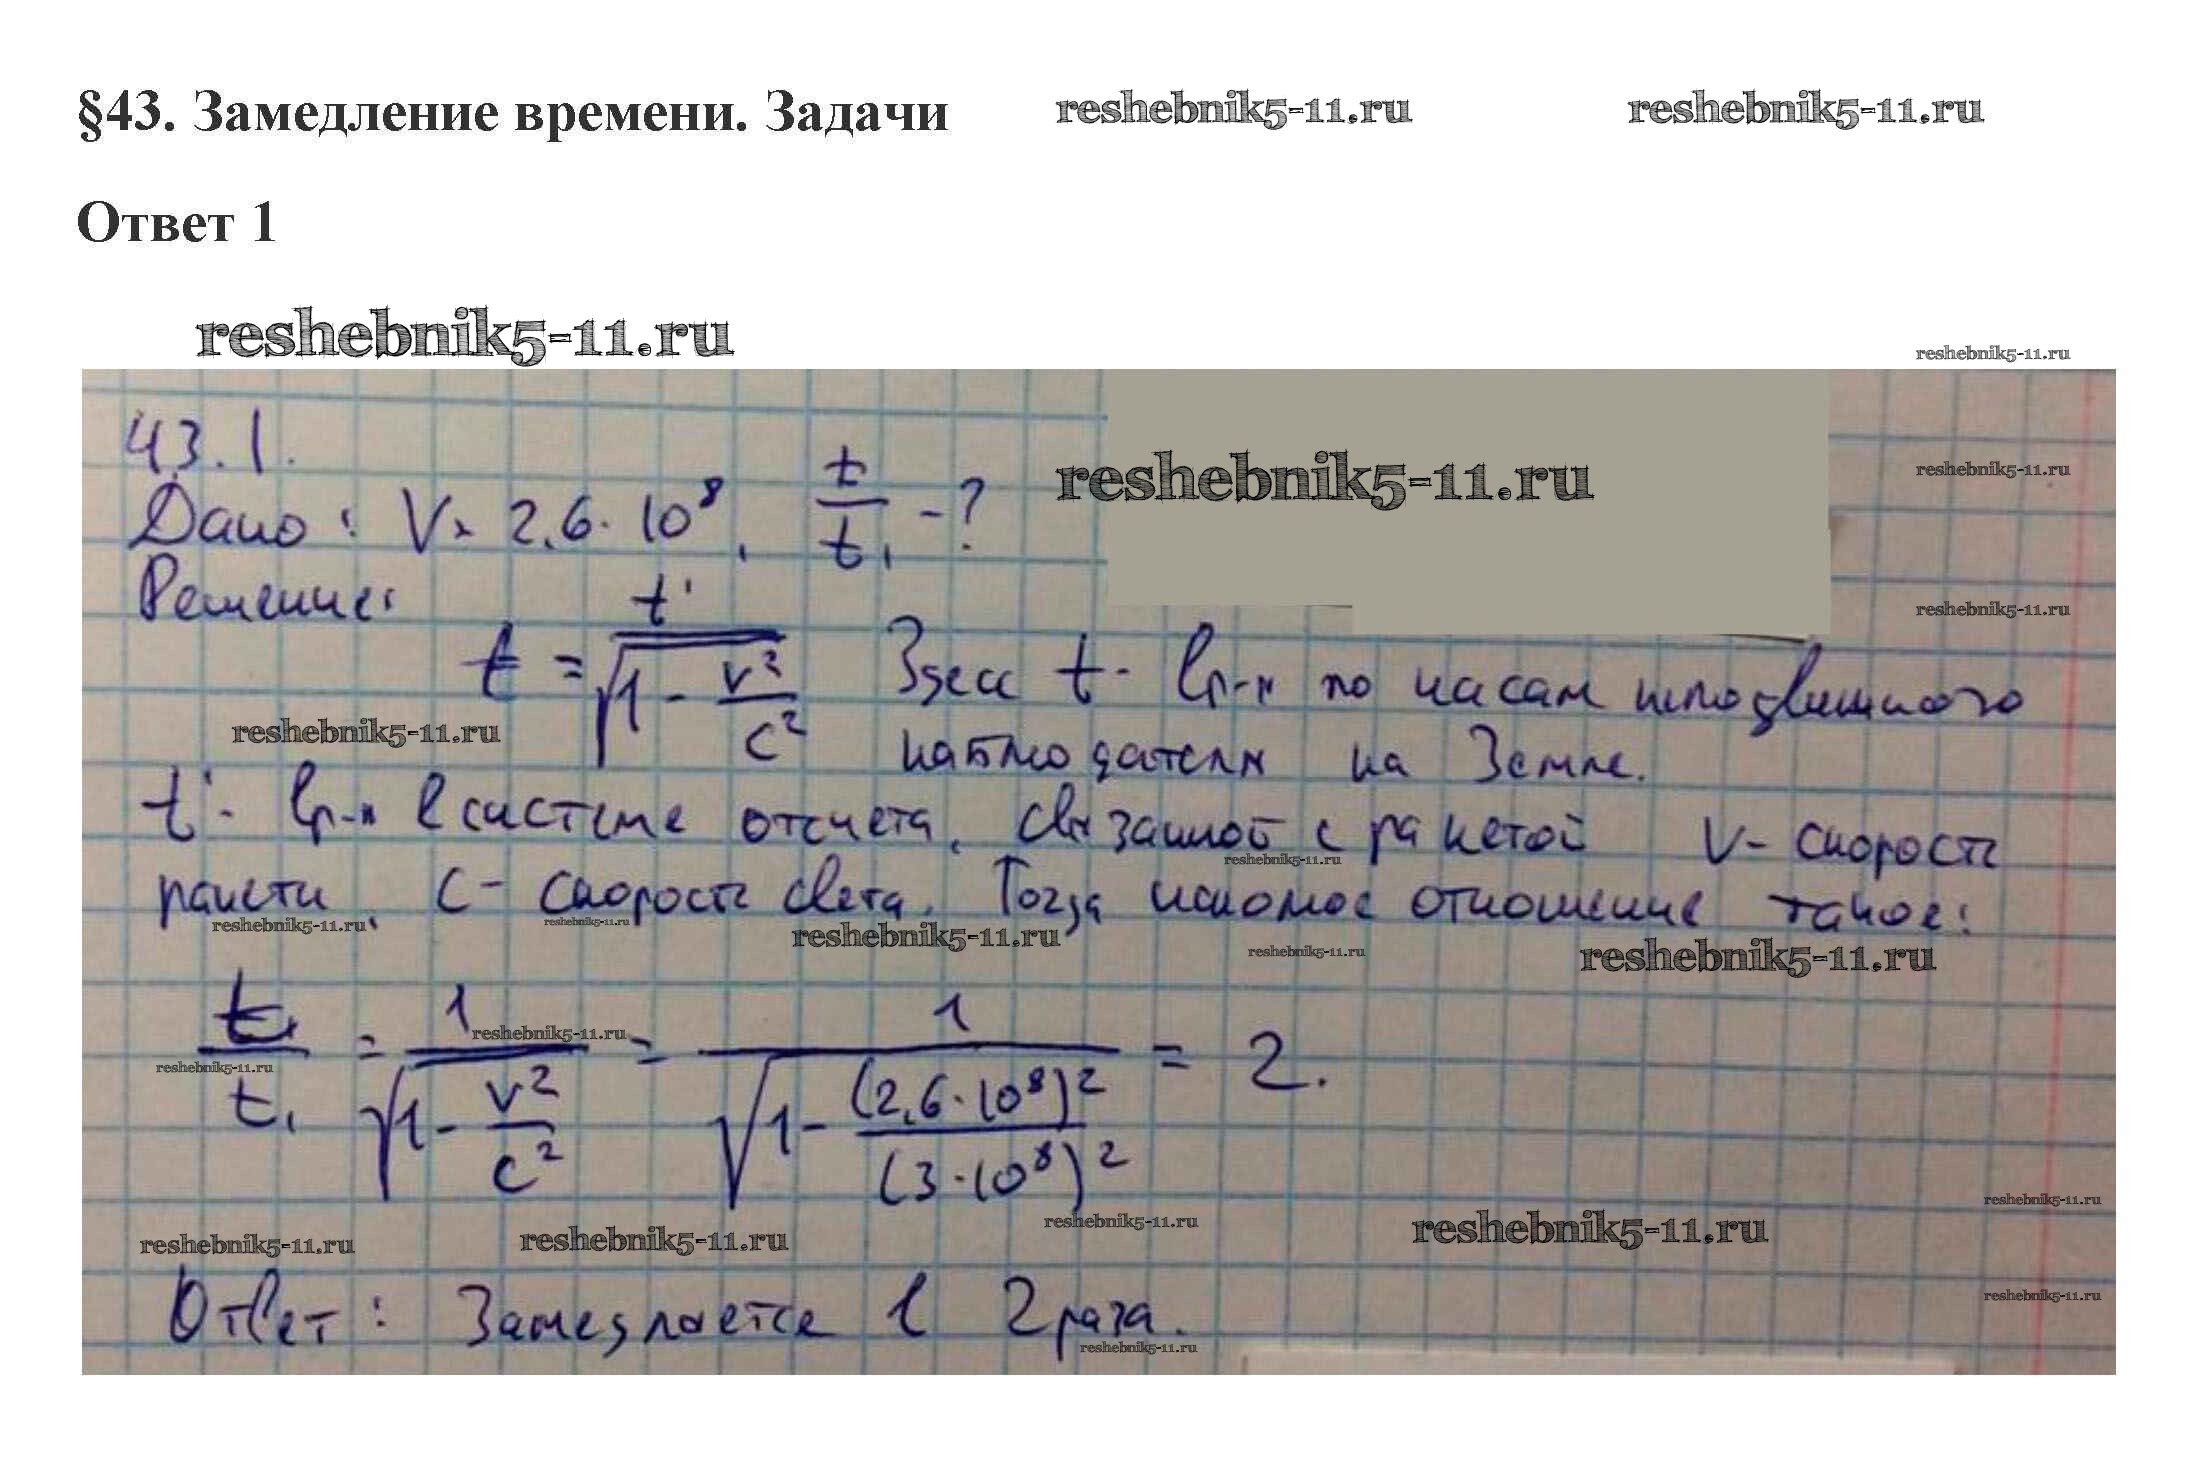 §43. Замедление времени. Задачи reshebnik5-11.ru reshebnik5-11.ru
Ответ 1
reshebnik5-11.ru
reshebnik5-11.ru
43.1.
reshebnik5-11.ru reshebnik5-11.ru
Дано: V = 2,6 · 10⁸, t/t₁ - ?
Решение:
reshebnik5-11.ru
t = t'/√(1 - v²/c²) Здесь t - вр-я по часам неподвижного
reshebnik5-11.ru
наблюдателя на Земле.
t' - вр-я в системе отсчета, связанной с ракетой V - скорость
reshebnik5-11.ru
ракеты, c - скорость света. Тогда искомое отношение такое:
reshebnik5-11.ru reshebnik5-11.ru reshebnik5-11.ru reshebnik5-11.ru reshebnik5-11.ru
t/t₁ = 1/√(1 - v²/c²) = 1/√(1 - (2,6·10⁸)²/(3·10⁸)²) = 2.
reshebnik5-11.ru
reshebnik5-11.ru
reshebnik5-11.ru
reshebnik5-11.ru reshebnik5-11.ru reshebnik5-11.ru reshebnik5-11.ru
reshebnik5-11.ru
Ответ: Замедляется в 2 раза.
reshebnik5-11.ru